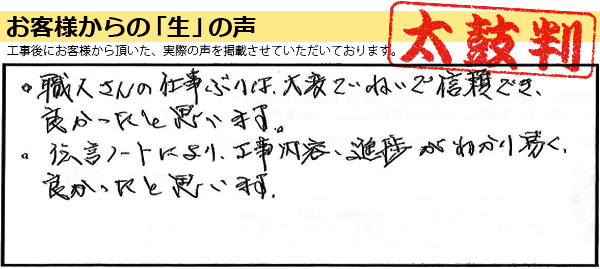 お客様からの「生」の声
工事後にお客様から頂いた、実際の声を掲載させていただいております。
太鼓判
。職人さんの仕事ぶりは、大変ていねいで信頼でき、
良かったと思います。
。伝言ノートにより、工事内容、進捗がわかり易く、
良かったと思います。